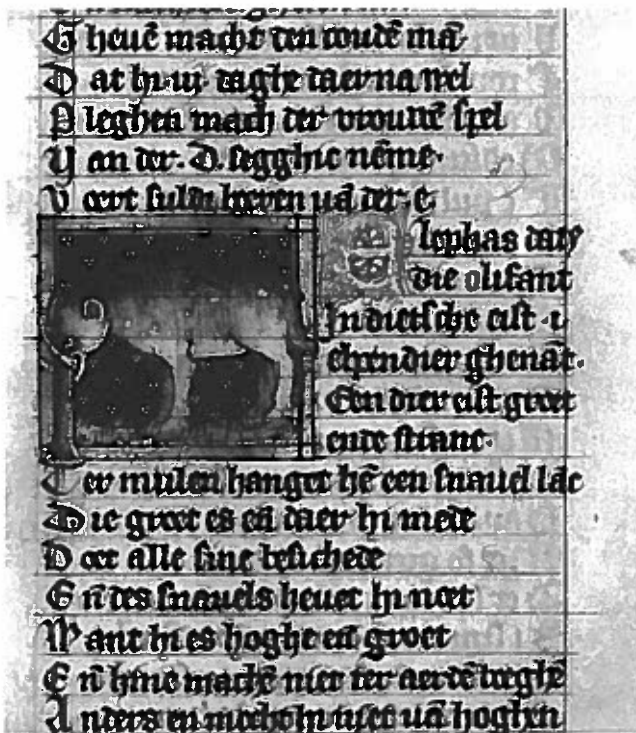 G heuē macht den couden mā
D at hi iij daghe daer na wel
P leghen mach der vrouwē spel
V an der .D. segghic nēme.
V oert suldi horen uā der .e.
Elephas dats
die olifant
In dietsche eist i
dier ghenāt.
Een dier eist groet
ende starc.
T er mulen hanget hē een snauel lāc
D ie groet es eñ daer hi mede
D oet alle sine besichede
E ñ des snauels heuet hi noet
W ant hi es hoghe eñ groet
E ñ hine machē niet ter aerdē boeghē
A nders en mocht hi niet uā hoghen